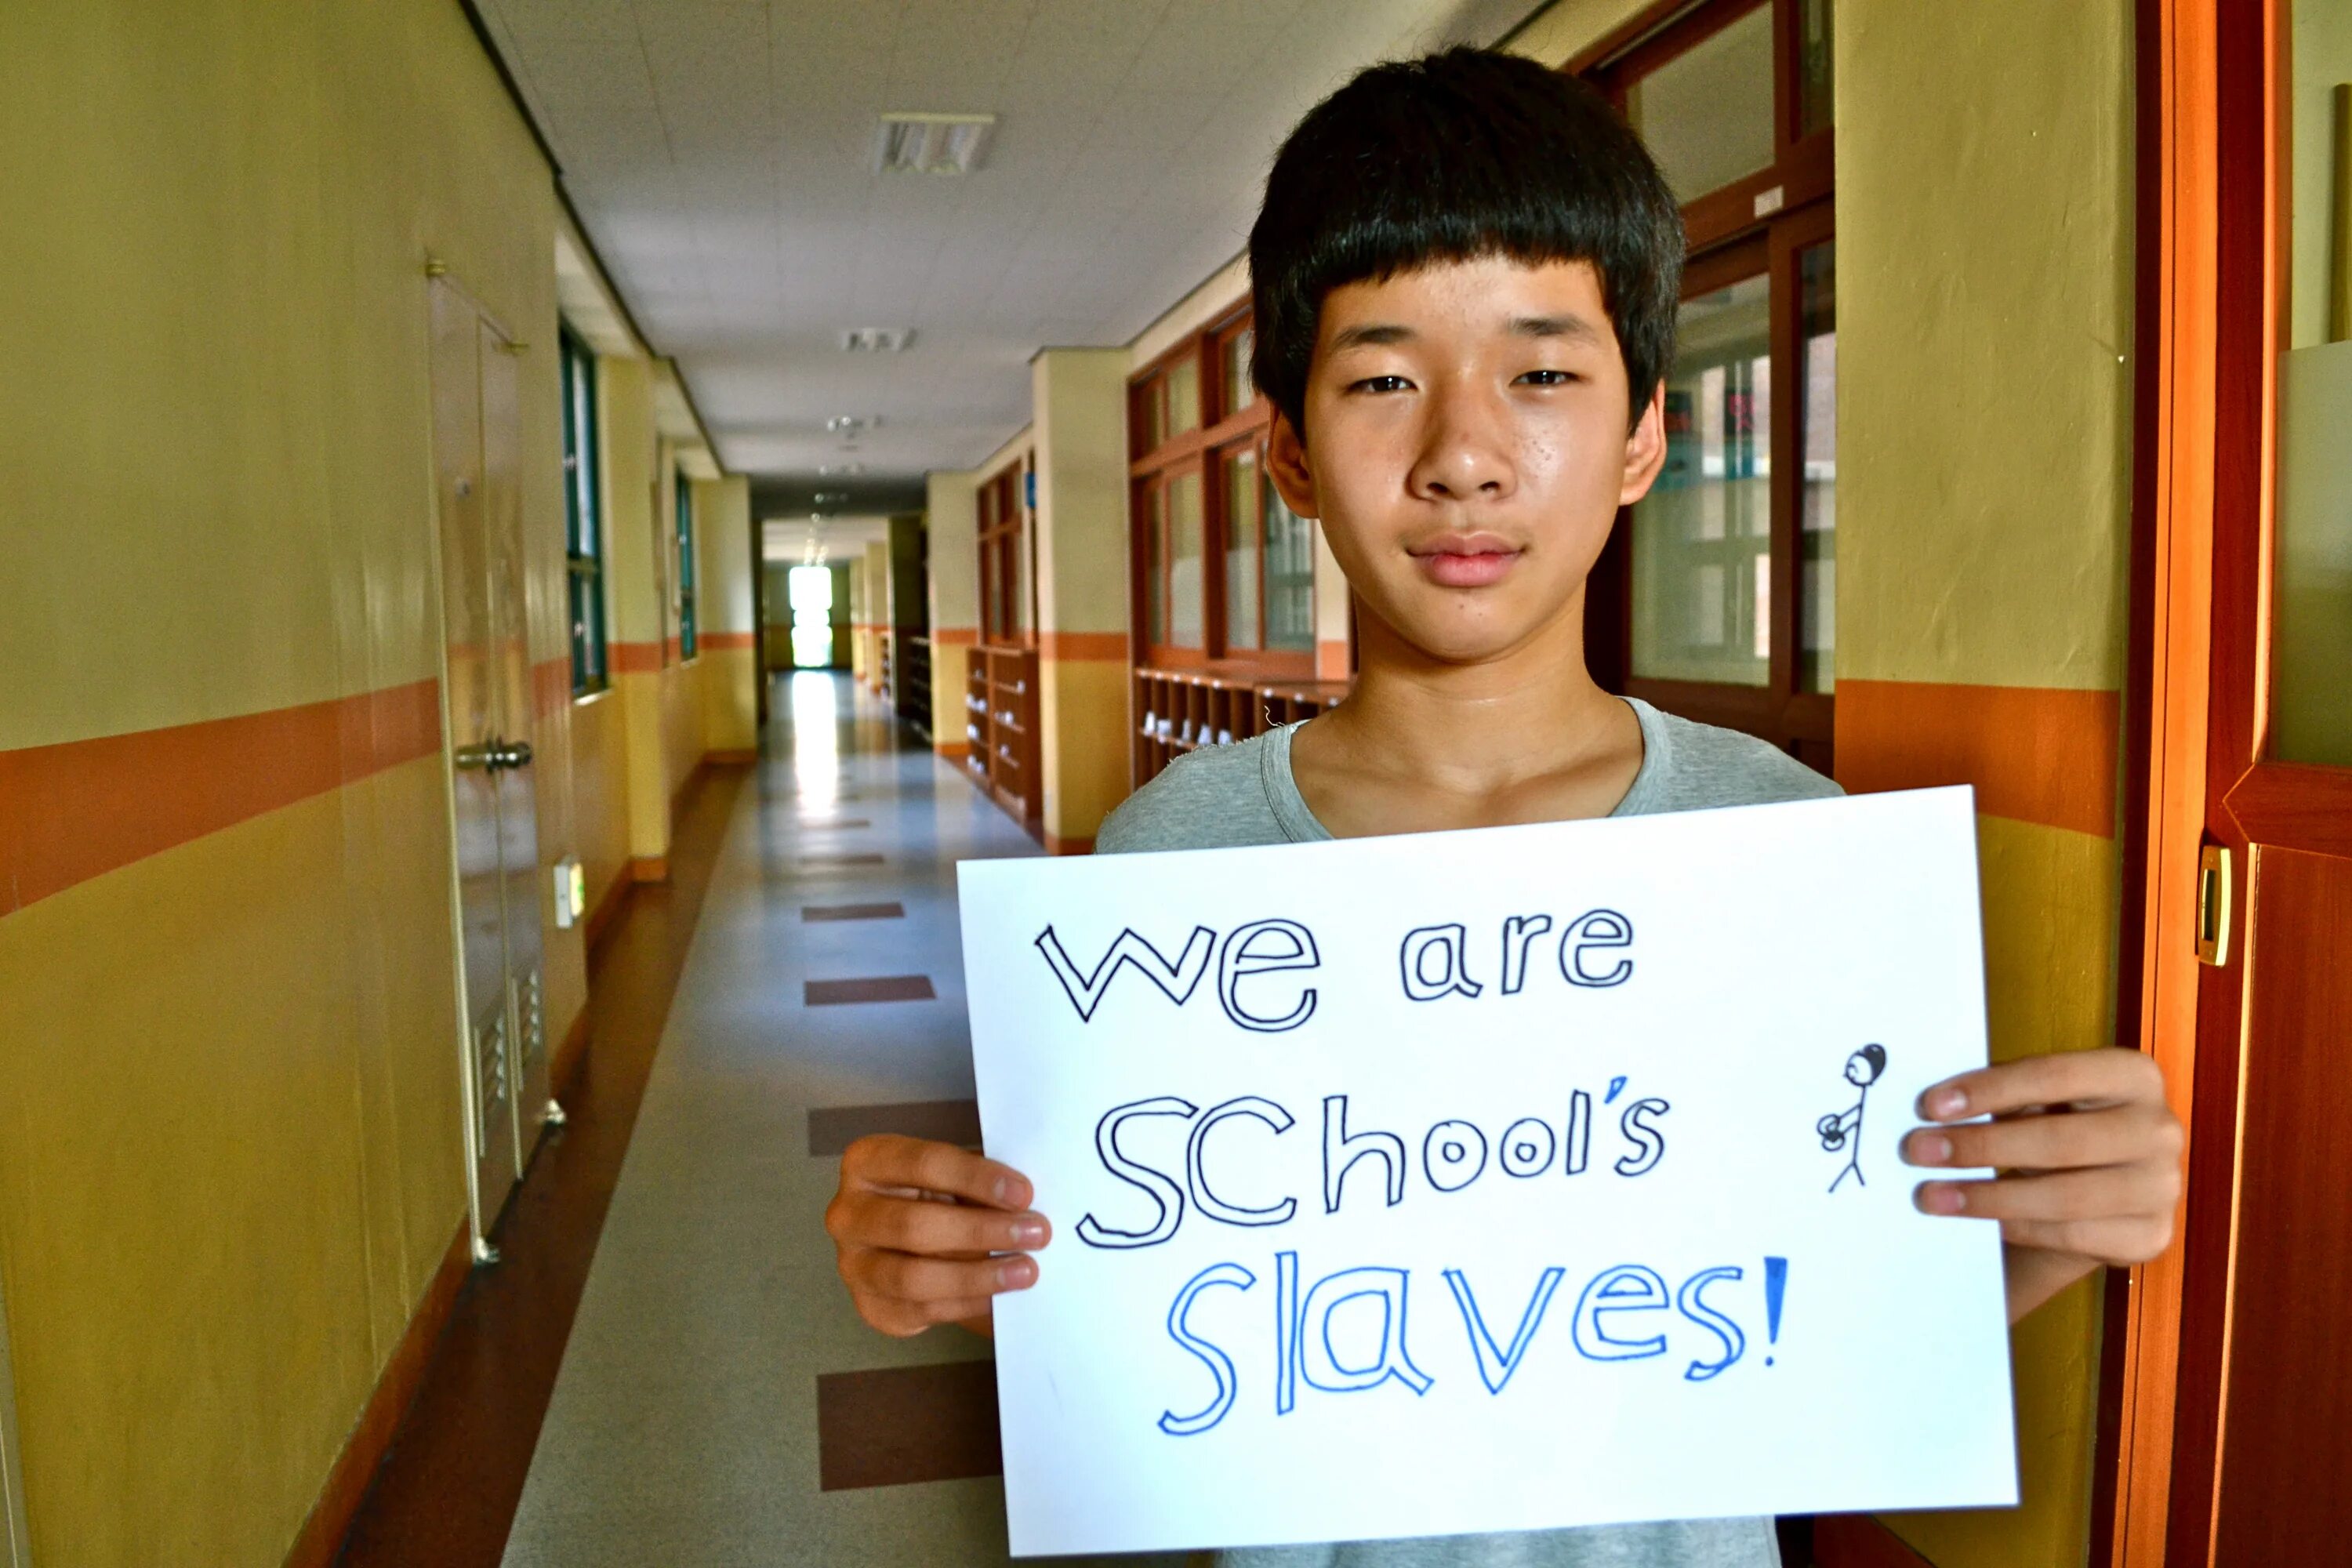 We are
SChool's
Slaves!